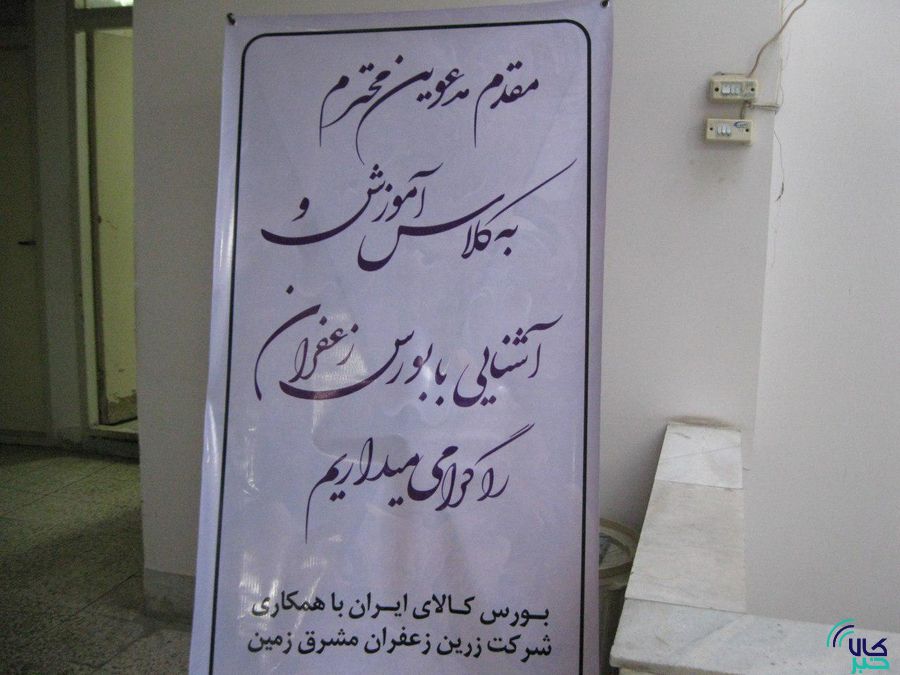 مقدم مدعوین محترم
به کلاس آموزش و
آشنایی با بورس زعفران
را گرامی میداریم
بورس کالای ایران با همکاری
شرکت زرین زعفران مشرق زمین
کالا
خبر